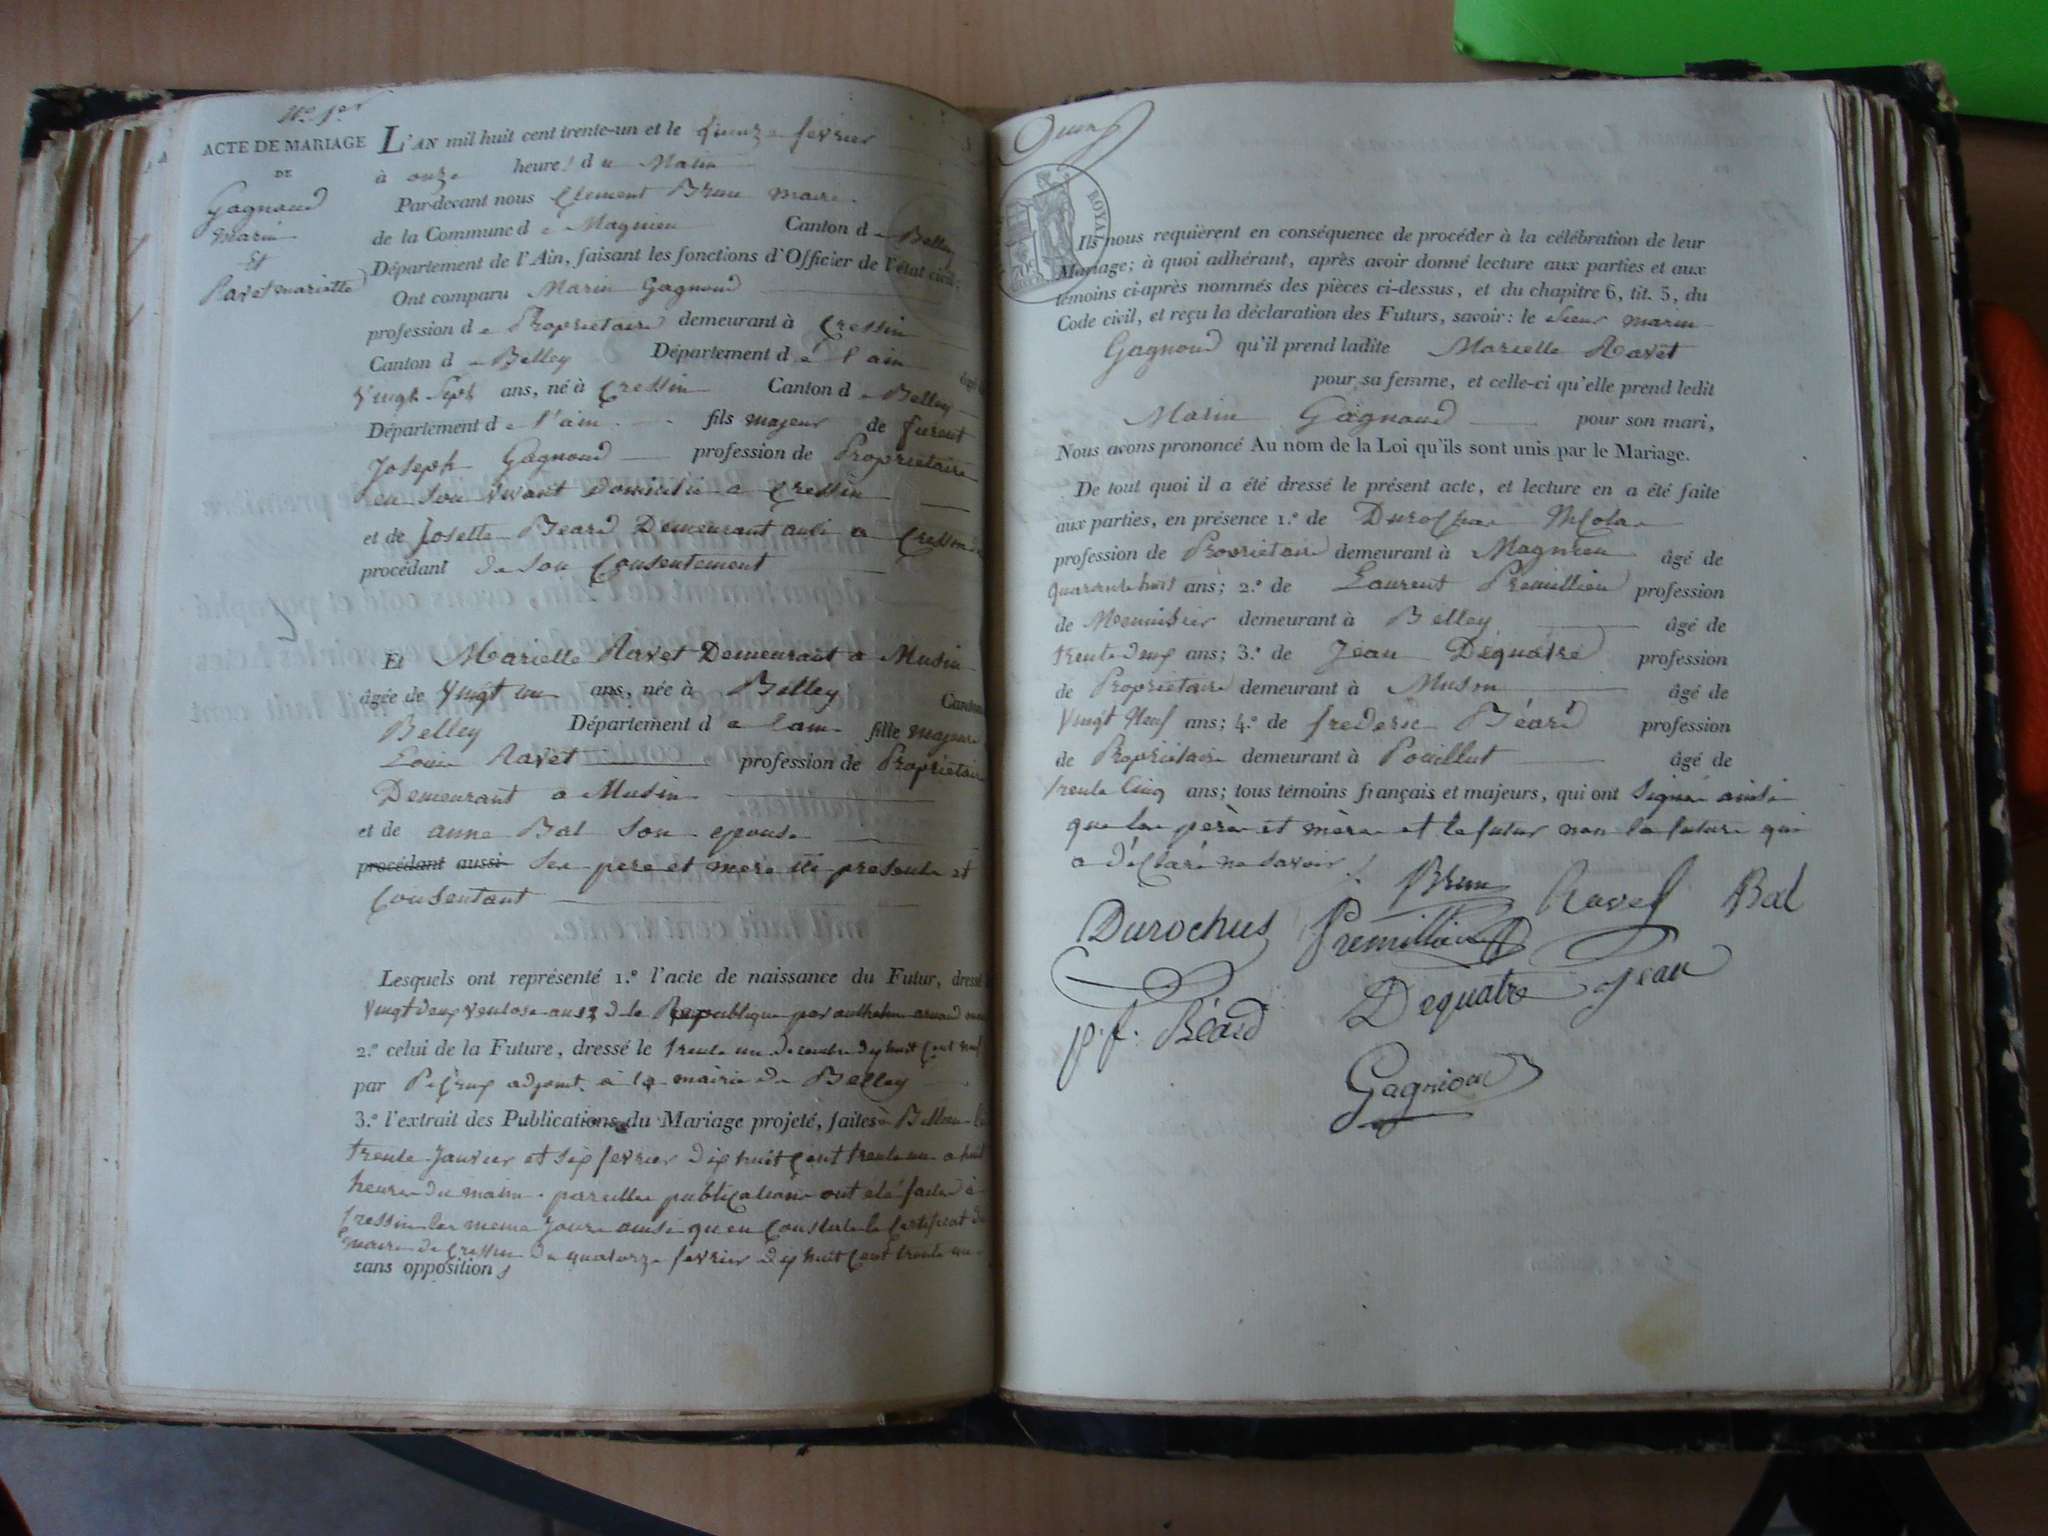 N.o 1.er
ACTE DE MARIAGE
DE
Gagnoud
Marin
Et
Ravet mariette
L'AN mil huit cent trente-un et le quinze fevrier
à onze heures du Matin
Par-devant nous Clement Brun maire
de la Commune de Magnieu Canton de Belley
Département de l'Ain, faisant les fonctions d'Officier de l'état civil;
Ont comparu Marin Gagnoud
profession de Propriétaire demeurant à Cressin
Canton de Belley Département de l'ain
vingt Sept ans, né à Cressin Canton de Belley
Département de l'ain fils majeur de furent
Joseph Gagnoud profession de Propriétaire
en Son vivant domicilié a Cressin
et de Josette Beard Demeurant aussi a Cressin
procédant de Son Consentement
Et Marielle Ravet Demeurant a Musin
âgée de vingt un ans, née à Belley Canton
Belley Département de l'ain fille majeure
Louis Ravet profession de Propriétaire
Demeurant a Musin
et de anne Bal Son epouse
procédant aussi Ses pere et mere ici presents et
Consentant
Lesquels ont représenté 1.º l'acte de naissance du Futur, dressé
vingt deux ventose an 12 de la Republique par arnaud
2.º celui de la Future, dressé le trente un decembre dix huit Cent neuf
par adjoint a la mairie de Belley
3.º l'extrait des Publications du Mariage projeté, faites à Belley
trente Janvier et six fevrier dix huit Cent trente un a huit
heures du matin pareilles publications ont été faites à
Cressin les meme Jours ainsi qu'en Constate le Certificat du
maire de Cressin du quatorze fevrier dix huit Cent trente un
sans opposition
ROYAL
Ils nous requièrent en conséquence de procéder à la célébration de leur
Mariage; à quoi adhérant, après avoir donné lecture aux parties et aux
témoins ci-après nommés des pièces ci-dessus, et du chapitre 6, tit. 5, du
Code civil, et reçu la déclaration des Futurs, savoir: le Sieur marin
Gagnoud qu'il prend ladite Marielle Ravet
pour sa femme, et celle-ci qu'elle prend ledit
Marin Gagnoud pour son mari,
Nous avons prononcé Au nom de la Loi qu'ils sont unis par le Mariage.
De tout quoi il a été dressé le présent acte, et lecture en a été faite
aux parties, en présence 1.º de Durochas Nicolas
profession de Propriétaire demeurant à Magnieu âgé de
quarante huit ans; 2.º de Laurent Premillieu profession
de Menuisier demeurant à Belley âgé de
trente deux ans; 3.º de Jean Déquatre profession
de Propriétaire demeurant à Musin âgé de
vingt Neuf ans; 4.º de frederic Béard profession
de Propriétaire demeurant à Pouillut âgé de
trente Cinq ans; tous témoins français et majeurs, qui ont Signé ainsi
que les père et mère et le futur non la future qui
a déclaré ne savoir
Brun Ravet Bal
Durochus Premillieu
Dequatre Jean
p. f. Béard
Gagnioud